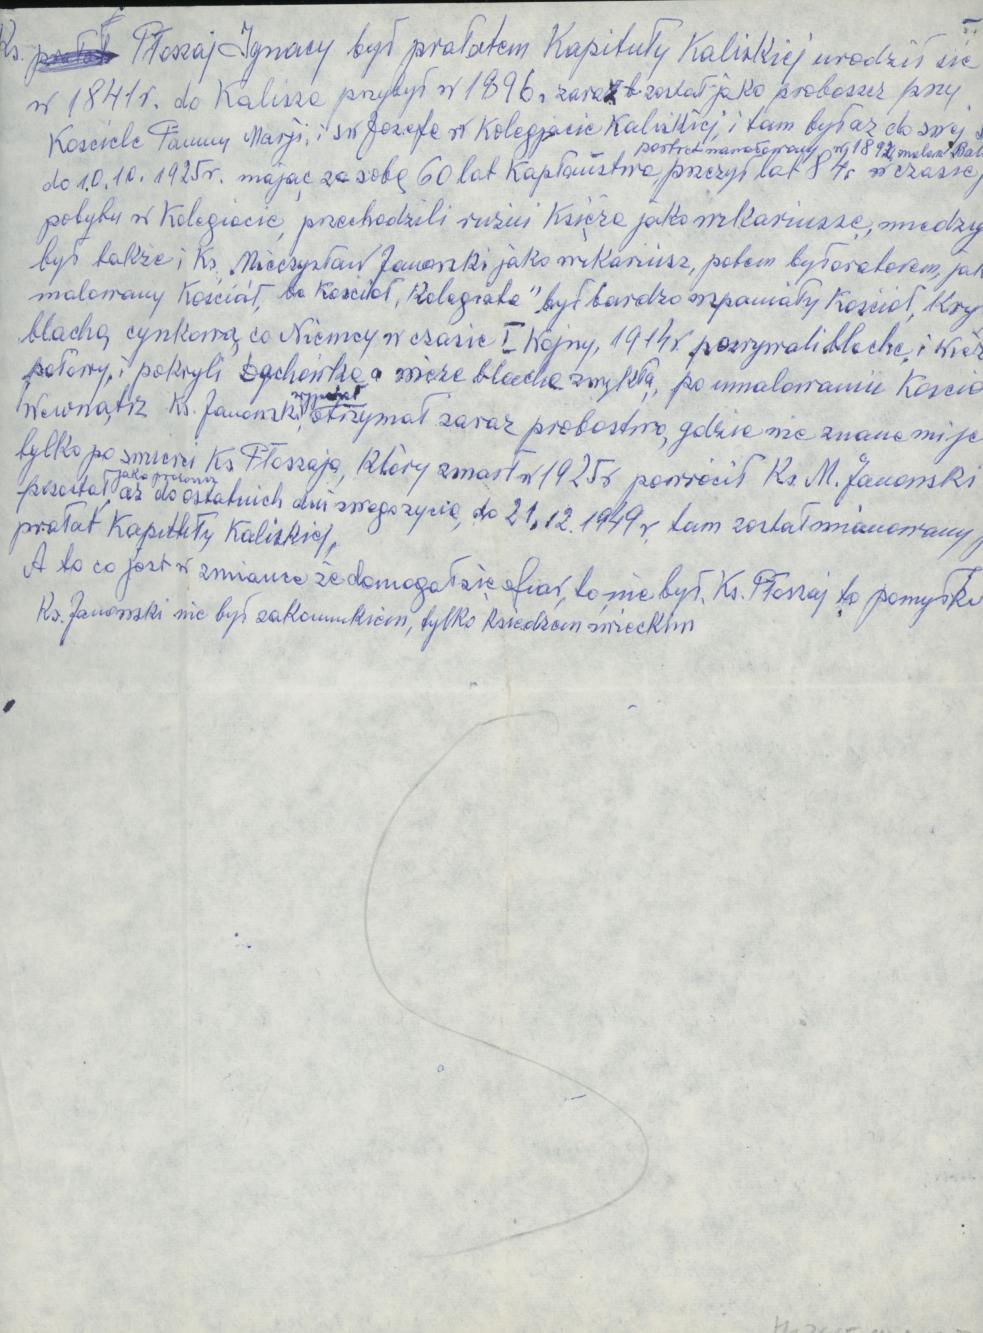 Ks. Płoszaj Ignacy był prałatem Kapituły Kaliskiej urodził się
w 1841r. do Kalisza przybył w 1896r zaraz został jako proboszcz przy
Kościele Panny Maryi, i św Józefa w Kolegjacie Kaliskiej, i tam był aż do swej
portret namalowany w 1892 malarz Bal
do 10.10.1925r. mając za sobą 60 lat Kapłaństwa, przeżył lat 84r w czasie
pobytu w Kolegiacie, przechodzili różni Księża jako wikariusze, między
był także i Ks. Mieczysław Janowski jako wikariusz, potem był
malowany Kościół, bo Kościół, Kolegiata" był bardzo wspaniały Kościół, Kry
blachą cynkową, co Niemcy w czasie I Wojny, 1914r pozrywali blachę, i wież
połowy, i pokryli dachówką a wieże blachą zwykłą, po umalowaniu Kościo
wewnątrz Ks. Janowski otrzymał zaraz probostwo, gdzie nie znane mi je
tylko po śmierci Ks Płoszaja, który zmarł w 1925r powrócił Ks. M. Janowski
pozostał aż do ostatnich dni swego życia, do 21.12.1949r, tam został mianowany
prałat Kapituły Kaliskiej,
A to co jest w zmiance że domagał się ofiar, to nie był, Ks. Płoszaj to pomyłka
Ks. Janowski nie był zakonnikiem, tylko Księdzem świeckim